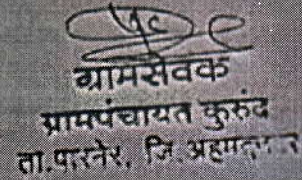 ग्रामसेवक
ग्रामपंचायत कुरुंद
ता.पारनेर, जि.अहमदनगर